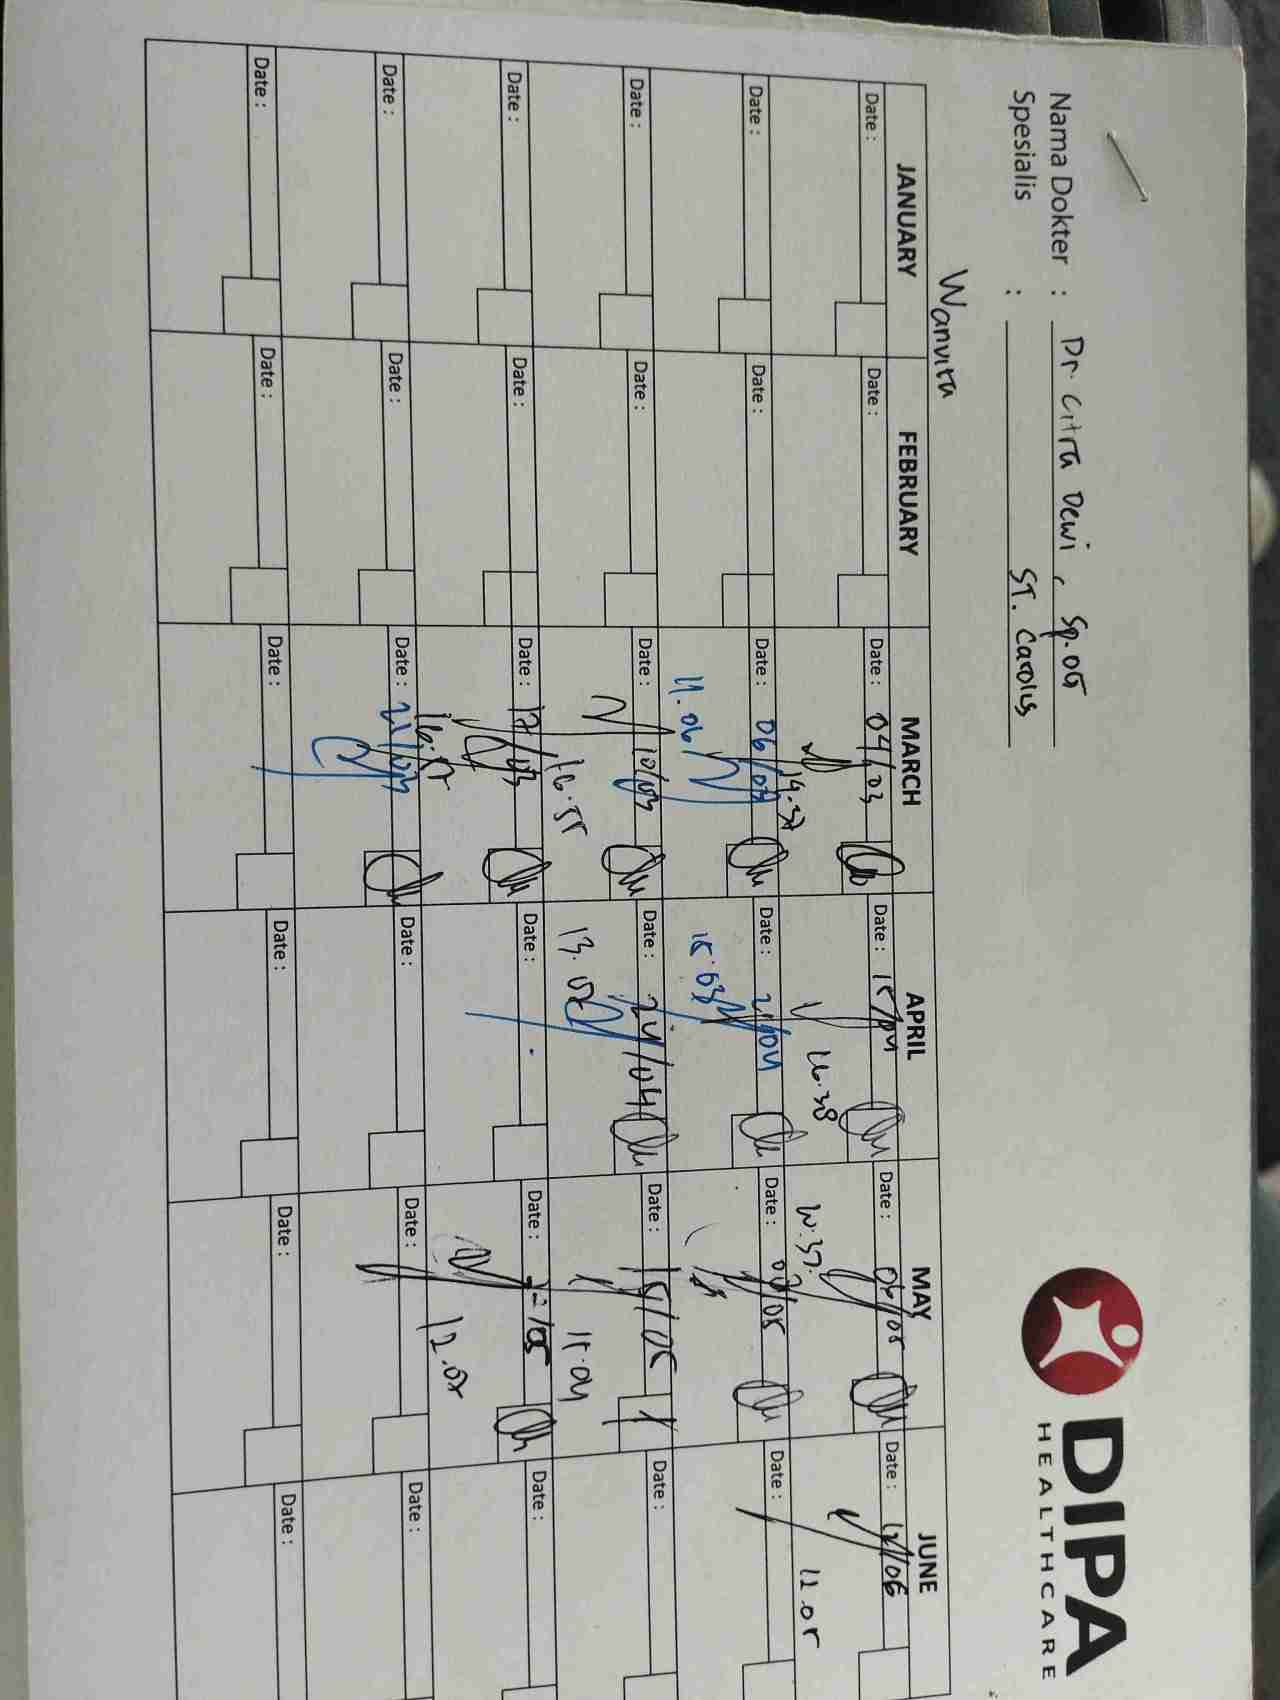 DIPA
HEALTHCARE
Nama Dokter : Dr. Citra Dewi, Sp.OG
Spesialis : ST. Carolus
Wanvita
JANUARY FEBRUARY MARCH APRIL MAY JUNE
Date : Date : Date : 04/03 Date : 15/04 Date : Date : 12/06
14.37 16.38 11.05
Date : Date : Date : 06/03 Date : 21/04 Date : Date :
11.06 15.03
Date : Date : Date : 10/03 Date : 24/04 Date : 15/05 Date :
16.35 13.02 11.04
Date : Date : Date : 17/03 Date : Date : Date :
16.57 12.02
Date : Date : Date : 21/03 Date : Date : Date :
Date : Date : Date : Date : Date : Date :